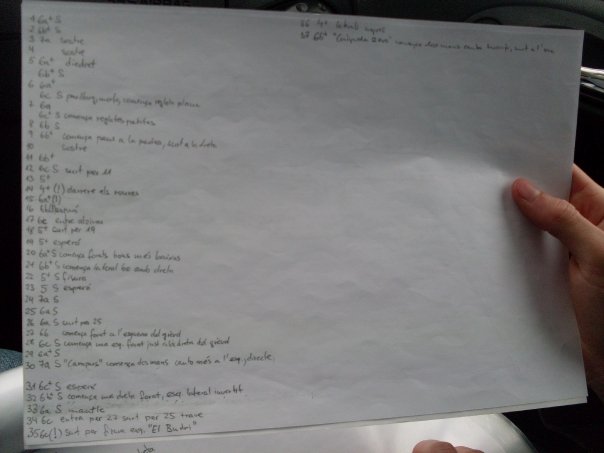 1 6a+ S
2 6b+ S
3 7a sostre
4 sostre
5 6a+ diedret
6b+ S
6 6a+
6c S comença regleta plana
7 6a
6c+ S comença regletes petites
8 6b S
9 6b+ comença peus a la pedra, surt a la dreta
10 sostre
11 6b+
12 6c S surt per 11
13 5+
14 4+ (!) darrere els roures
15 6a+(!)
16
17 6c entre alzines
18 5+ surt per 19
19 5+ esperó
20 6a+ S comença forats bons més baixos
21 6b+ S comença lateral be amb dreta
22 5+ S fisura
23 5 S esperó
24 7a S
25 6a S
26 6a S surt per 25
27 6b comença forat a l'esquerra del
28 6c S comença ma esq. forat just a la dreta del
29 6a+ S
30 7a S "Campus" comença dos mans canto més a l'esq., directe.
31 6c+ S esperó
32 6b+ S comença ma dreta forat, esq. lateral invertit
33 6a S mantle
34 6c entra per 27 surt per 25 trave
35 6c(!) surt per fisura esq. "El Budri"
36 4+
37 6b+ comença dos mans amb